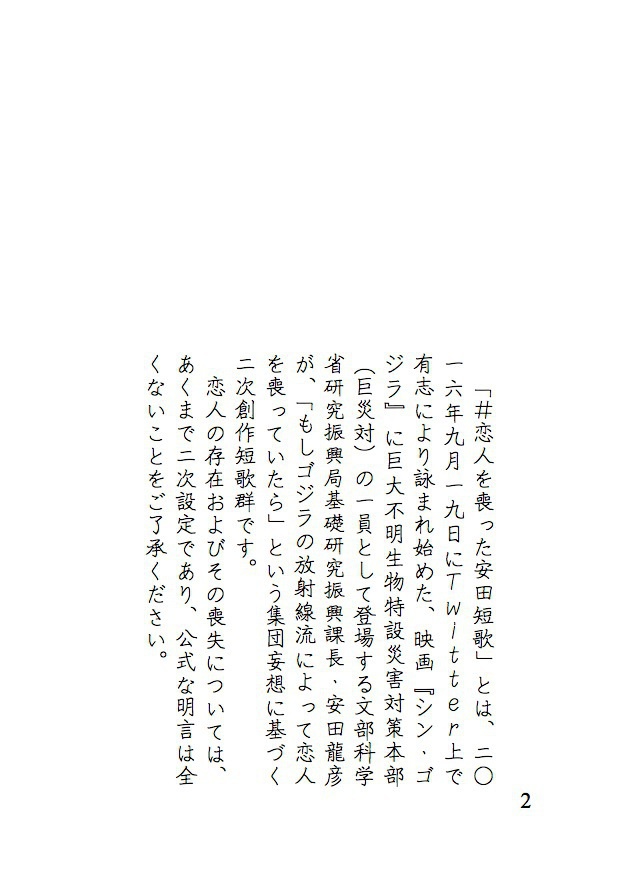 「＃恋人を喪った安田短歌」とは、二〇
一六年九月一九日にＴｗｉｔｔｅｒ上で
有志により詠まれ始めた、映画『シン・ゴ
ジラ』に巨大不明生物特設災害対策本部
（巨災対）の一員として登場する文部科学
省研究振興局基礎研究振興課長・安田龍彦
が、「もしゴジラの放射線流によって恋人
を喪っていたら」という集団妄想に基づく
二次創作短歌群です。
恋人の存在およびその喪失については、
あくまで二次設定であり、公式な明言は全
くないことをご了承ください。
2